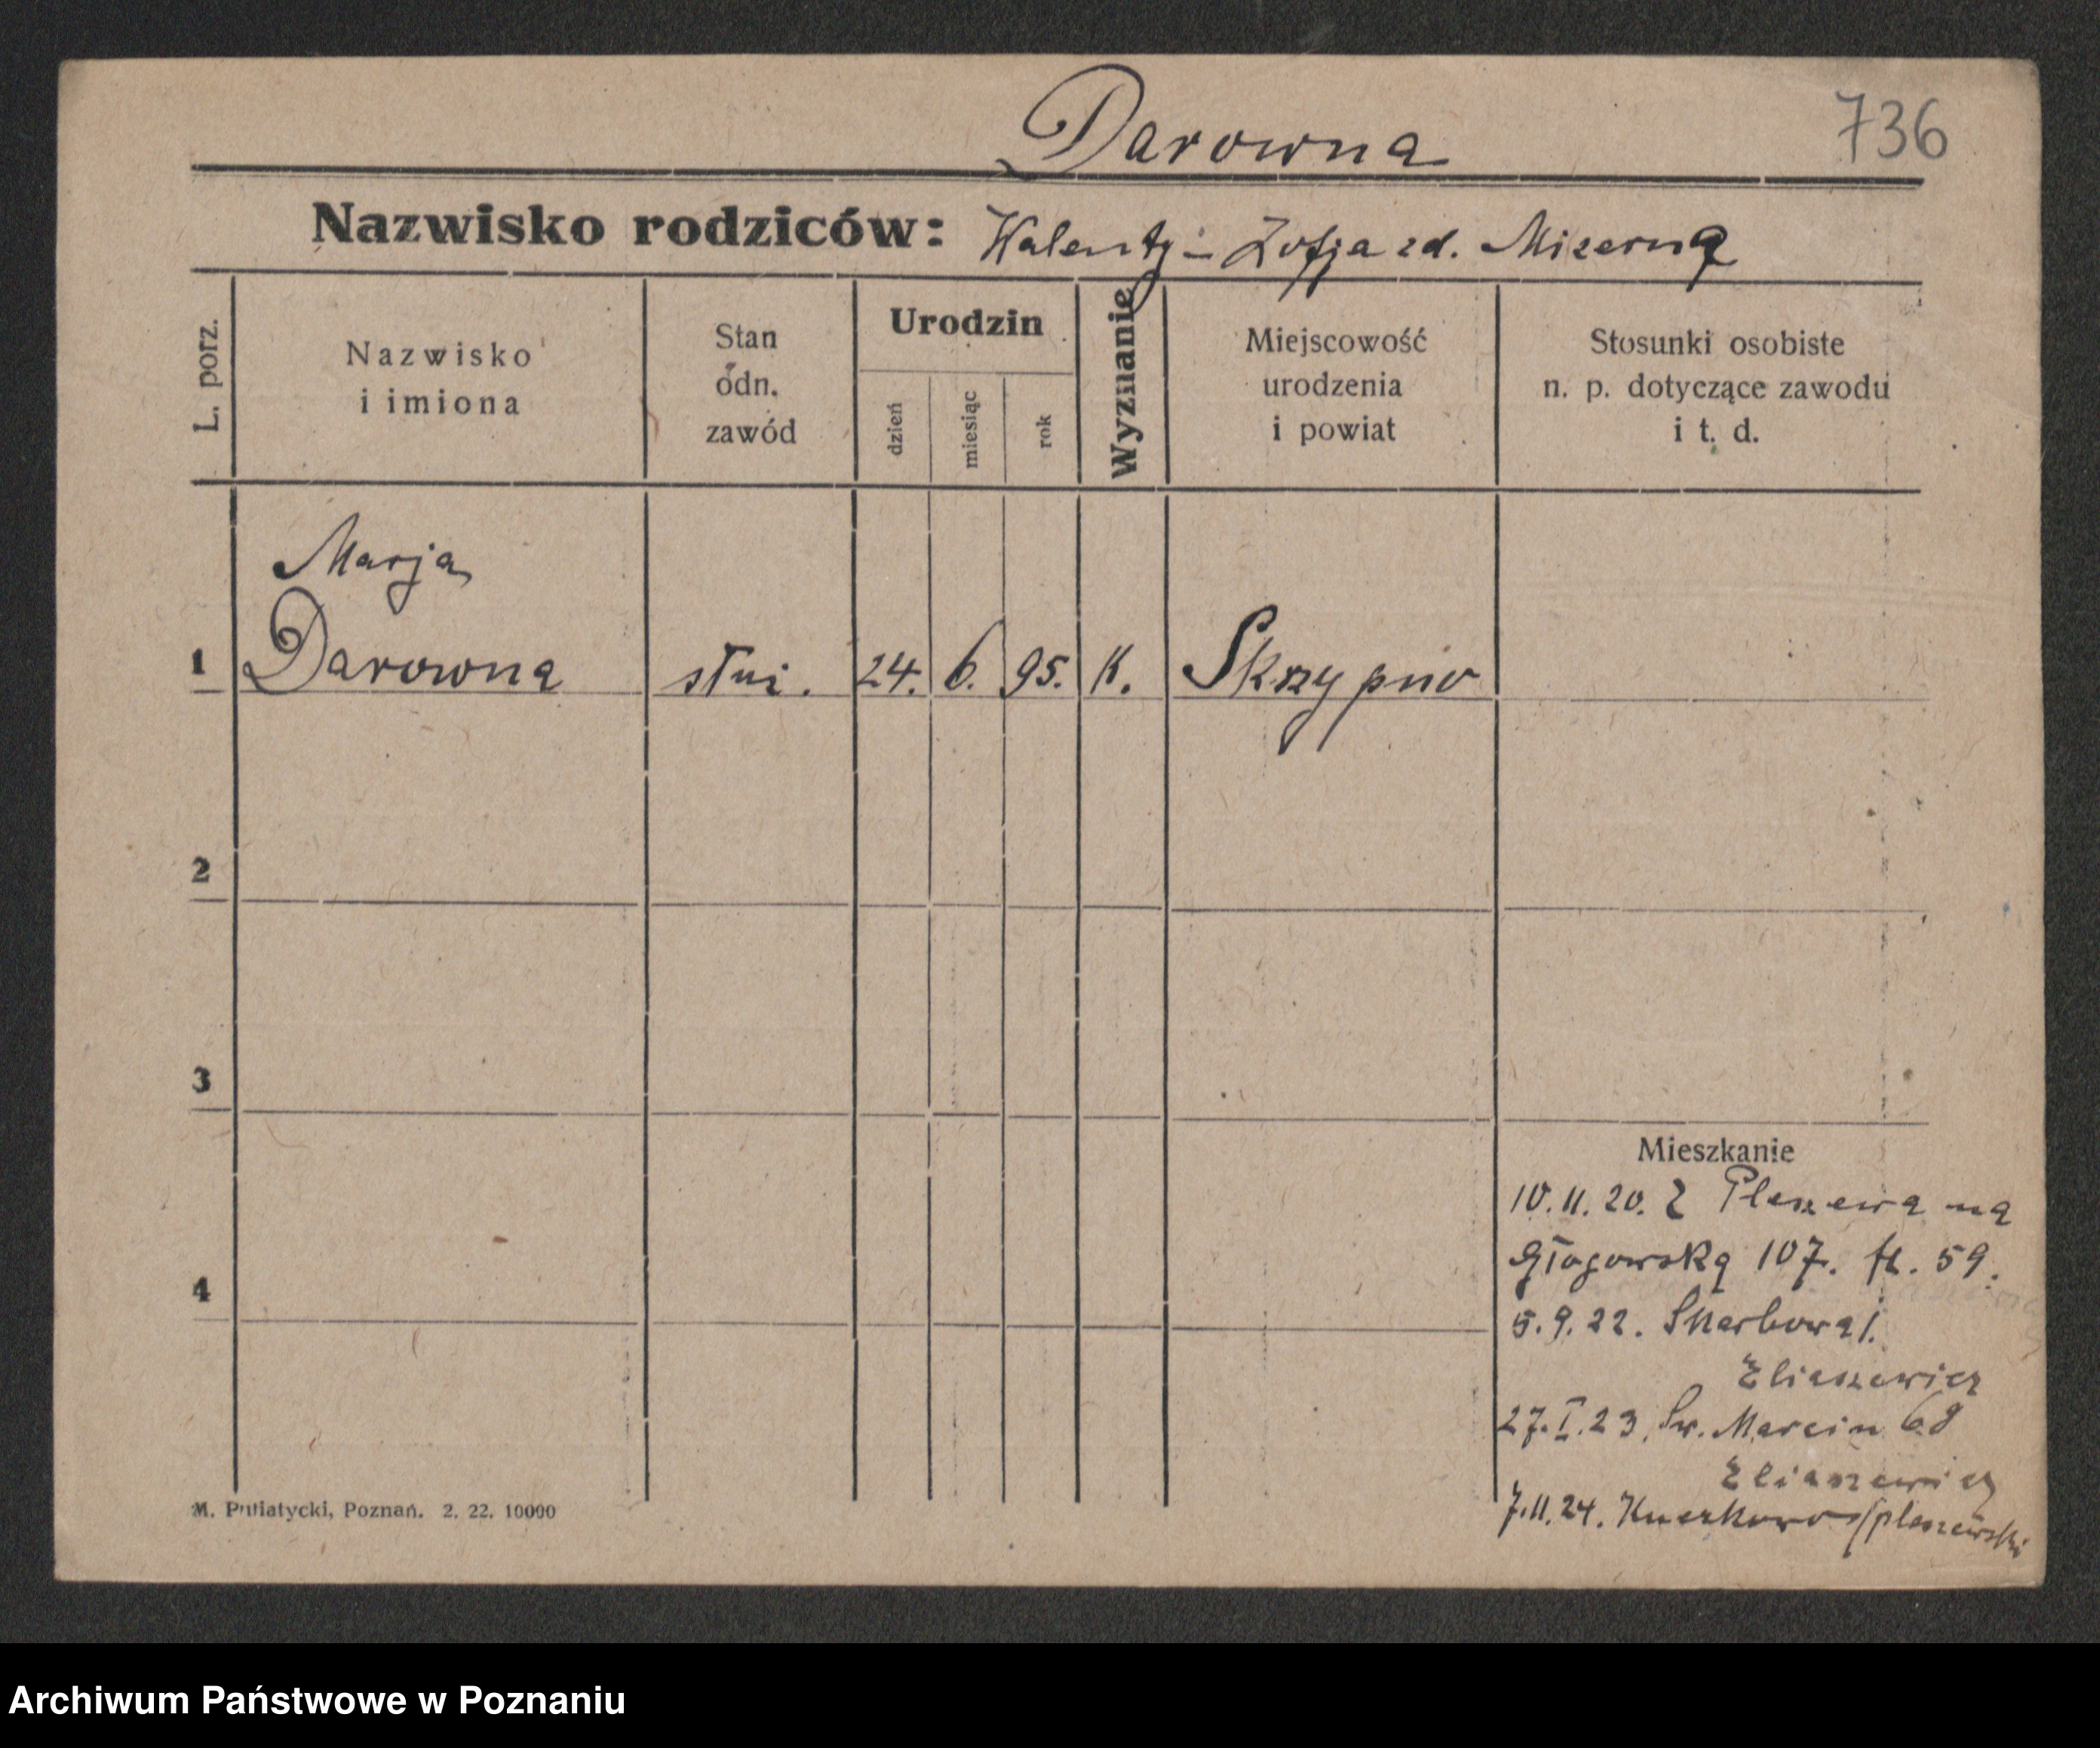 Darowna
736
Nazwisko rodziców: Walenty - Zofja zd. Mizerna
L. porz.
Nazwisko
i imiona
Stan
odn.
zawód
Urodzin
dzień
miesiąc
rok
Wyznanie
Miejscowość
urodzenia
i powiat
Stosunki osobiste
n. p. dotyczące zawodu
i t. d.
Marja
1 Darowna służ. 24. 6. 95. K. Skrzypno
2
3
4
Mieszkanie
10.11.20. Z Pleszewa na
Głogowską 107. fl. 59.
5.9.22. Skarbowa 1.
Eliaszewicz
27.I.23. Św. Marcin 69
Eliaszewicz
7.11.24. /pleszewski
M. Putiatycki, Poznań. 2. 22. 10000
Archiwum Państwowe w Poznaniu